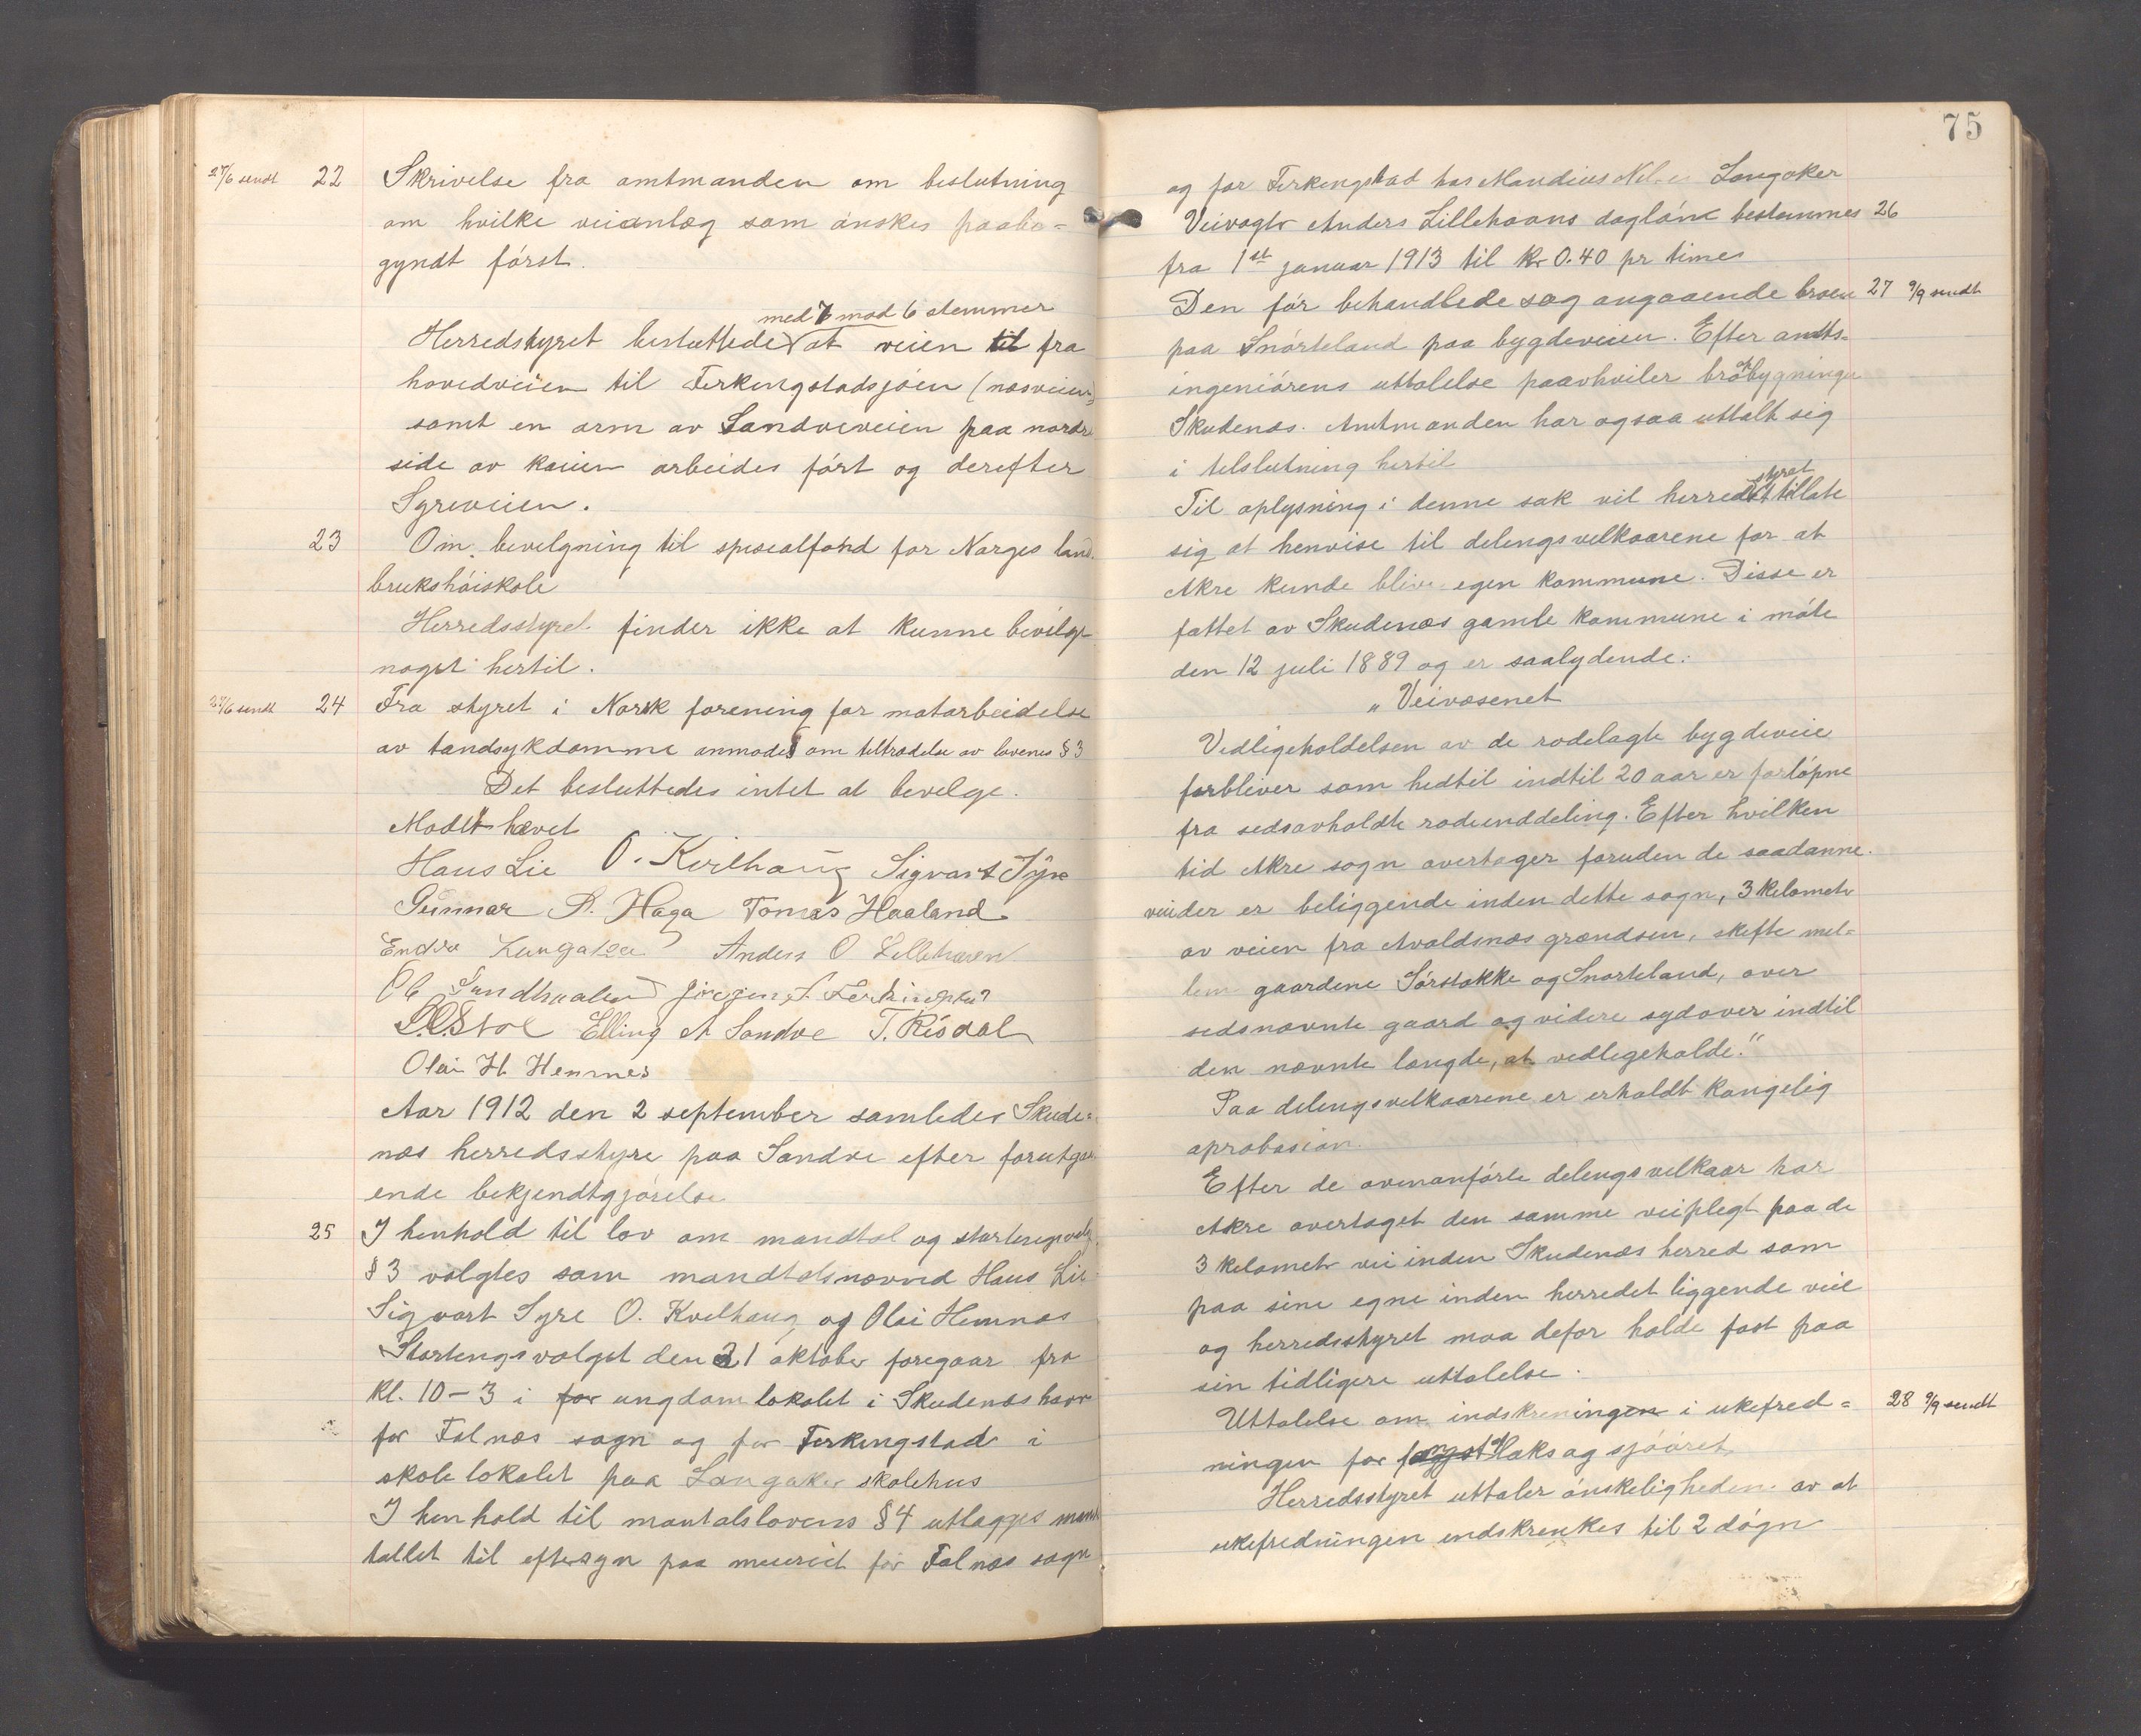 27/6 sendt 22 Skrivelse fra amtmanden om beslutning
om hvilke veianlæg som ønskes paabe-
gyndt først.
med 7 mod 6 stemmer
Herredstyret besluttede at veien til fra
hovedveien til Ferkingstadsjøen (næsveien)
samt en arm av Sandveveien paa nordre
side av kaien arbeides ført og derefter
Syreveien.
23 Om bevilgning til spesealfond for Norges land
brukshøiskole
Herredsstyret finder ikke at kunne bevilge
noget hertil.
27/6 sendt 24 Fra styret i Norsk forening for motarbeidelse
av tandsykdomme anmodes om tiltrædelse av lovenes § 3
Det besluttedes intet at bevilge.
Mødet hævet
Hans Lie O. Kvilhaug Sigvart Syre
Gunnar A. Haga Tomas Haaland
Endre Langaker Anders O Lillehaven
Ole Sandhaaland Jørgen Ferkingstad
Elling A Sandve T. Risdal
Olai H. Hemnes
Aar 1912 den 2 september samledes Skude-
næs herredsstyre paa Sandve efter forutgaa
ende bekjendtgjørelse
25 I henhold til lov om mandtal og stortingsvalg
§ 3 valgtes som mandtalsnævnd Hans Lie
Sigvart Syre O. Kvelhaug og Olai Hemnæs
Stortingsvalget den 21 oktober foregaar fra
kl. 10-3 i for ungdomlokalet i Skudenæshavn
for Falnæs sogn og for Ferkingstad i
skolelokalet paa Langaker skolehus
I henhold til mantalslovens § 4 utlægges mand
tallet til eftersyn paa museeit for Falnæs sogn
75
og for Ferkingstad hos Mandius Langaker
Veivogter Anders Lillehavns dagløn bestemmes 26
fra 1st januar 1913 til kr 0.40 pr time
Den før behandlede sag angaaende broen 27 9/9 sendt
paa Snørteland paa bygdeveien. Efter amts-
ingeniørens uttalelse paavhviler brobygningen
Skudenæs. Amtmanden har ogsaa uttalt sig
i tilslutning hertil
Til oplysning i denne sak vil herredstyret tillate
sig at henvise til delingsvelkaarene for at
Akre kunde blive egen kommune. Disse er
fattet av Skudenæs gamle kommune i møte
den 12 juli 1889 og er saalydende:
„Veivæsenet
Vedligeholdelsen av de rodelagte bygdeveie
forbliver som hedtil indtil 20 aar er forløpne
fra sedsavholdte rodeinddeling. Efter hvilken
tid Akre sogn overtager foruden de saadanne
veie der er beliggende inden dette sogn, 3 kilometer
av veien fra Avaldsnæs grændsen, skefte mel-
lem gaardene Sørstokke og Snorteland, over
sedsnævnte gaard og videre sydover indtil
den nævnte længde, at vedligeholde."
Paa delingsvelkaarene er erholdt kongelig
aprobasion.
Efter de ovenanførte delingsvelkaar har
Akre overtaget den samme veiplegt paa de
3 kilometer vei inden Skudenæs herred som
paa sine egne inden herredet liggende veie
og herredsstyret maa defor holde fast paa
sin tidligere uttalelse.
Uttalelse om indskreningen i ukefred- 28 9/9 sendt
ningen for fangst af laks og sjøøret
Herredsstyret uttaler ønskeligheden av at
ukefredningen indskrenkes til 2 døgn